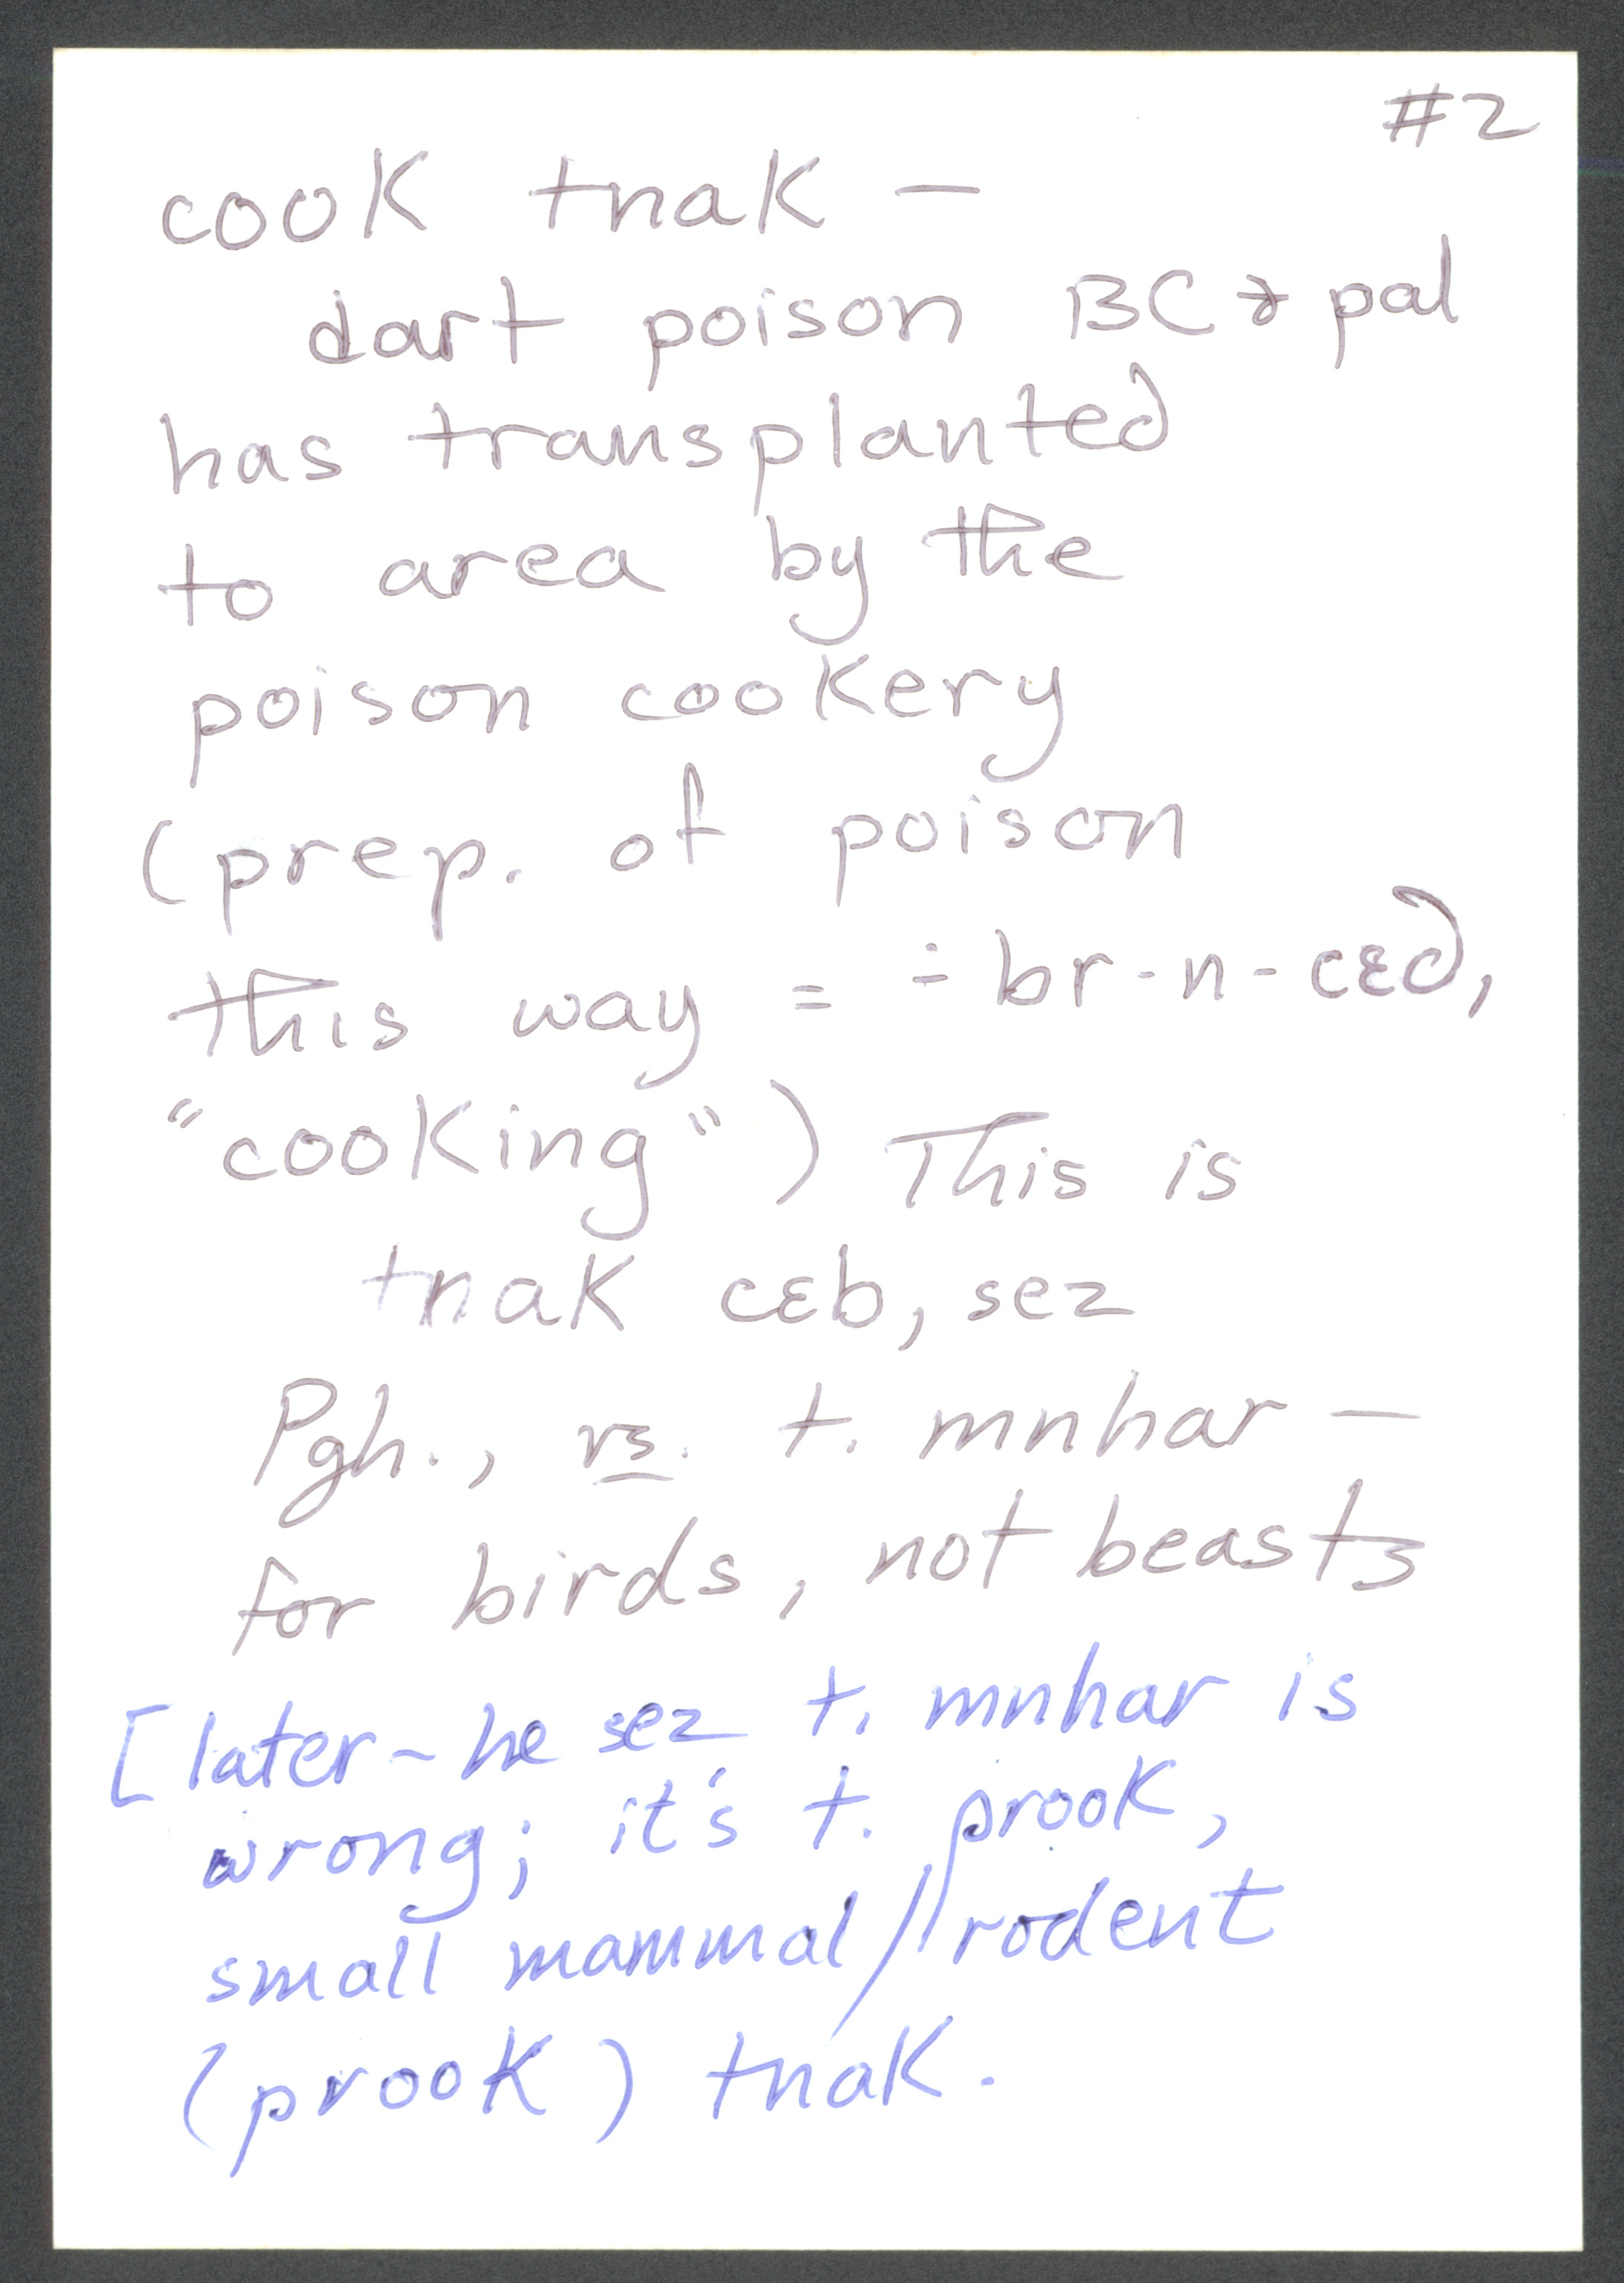 #2
cook tnak —
dart poison BC & pal
has transplanted
to area by the
poison cookery
(prep. of poison
this way = ÷ br-n-cɛd,
"cooking") This is
tnak cɛb, sez
Pgh., vs. t. mnhar —
for birds, not beasts
[later ~ he sez t. mnhar is
wrong; it's t. prook,
small mammal/rodent
(prook) tnak.